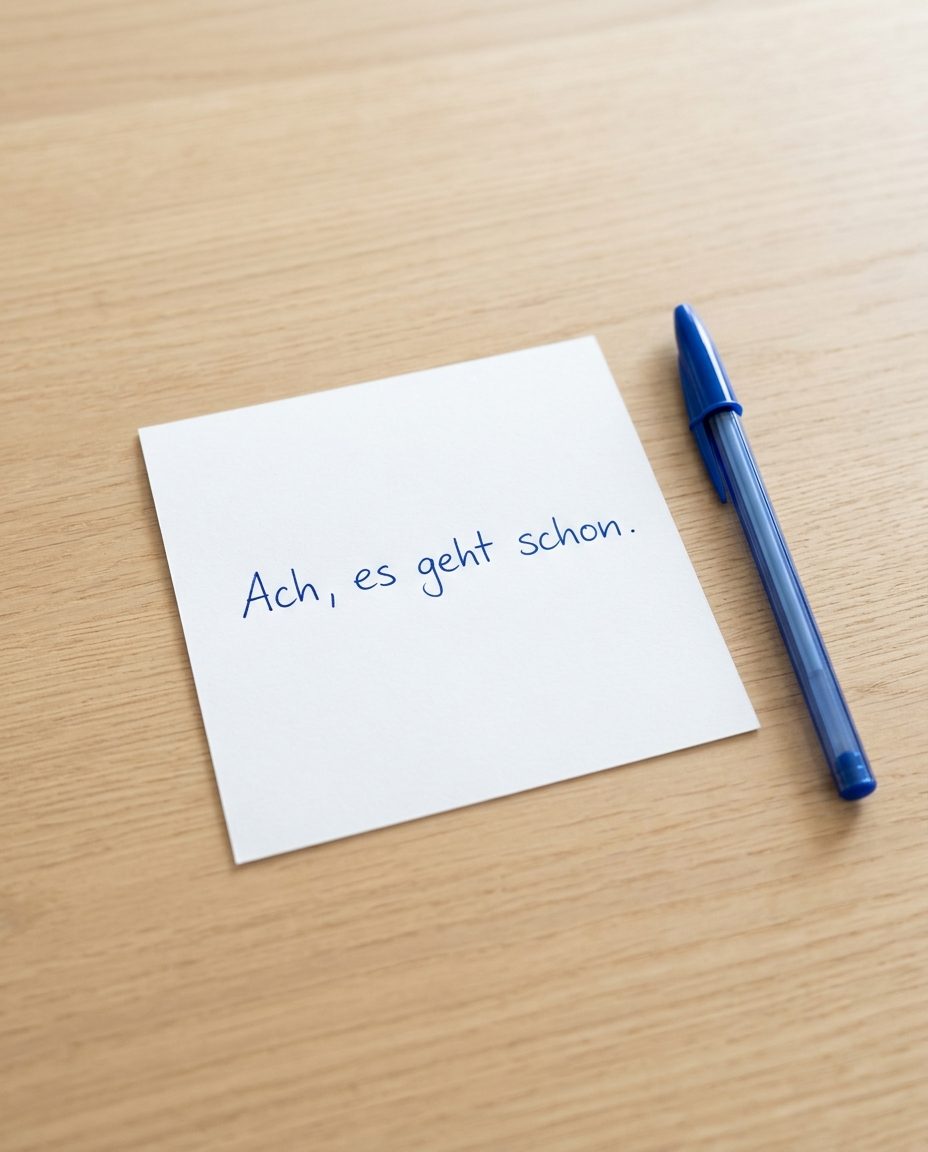 Ach, es geht schon.